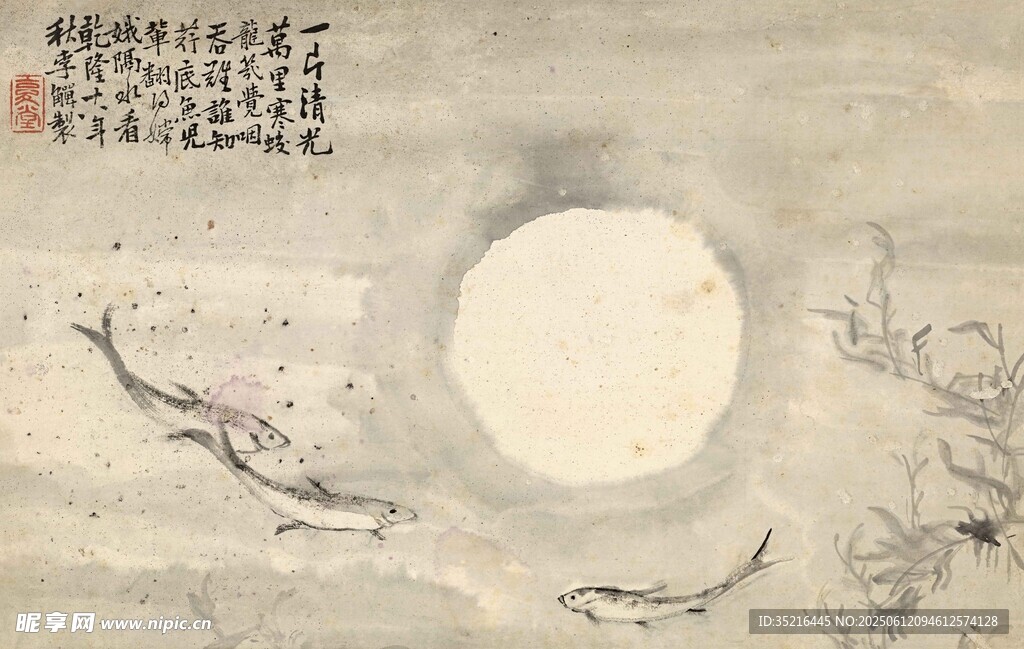 一片清光
萬里寒蛟
龍覺咽
吞難誰知
荇底魚兒
輩翻得嫦
娥隔水看
乾隆十八年
秋李觶製
昵享网 www.nipic.cn
ID:35216445 NO:20250612094612574128